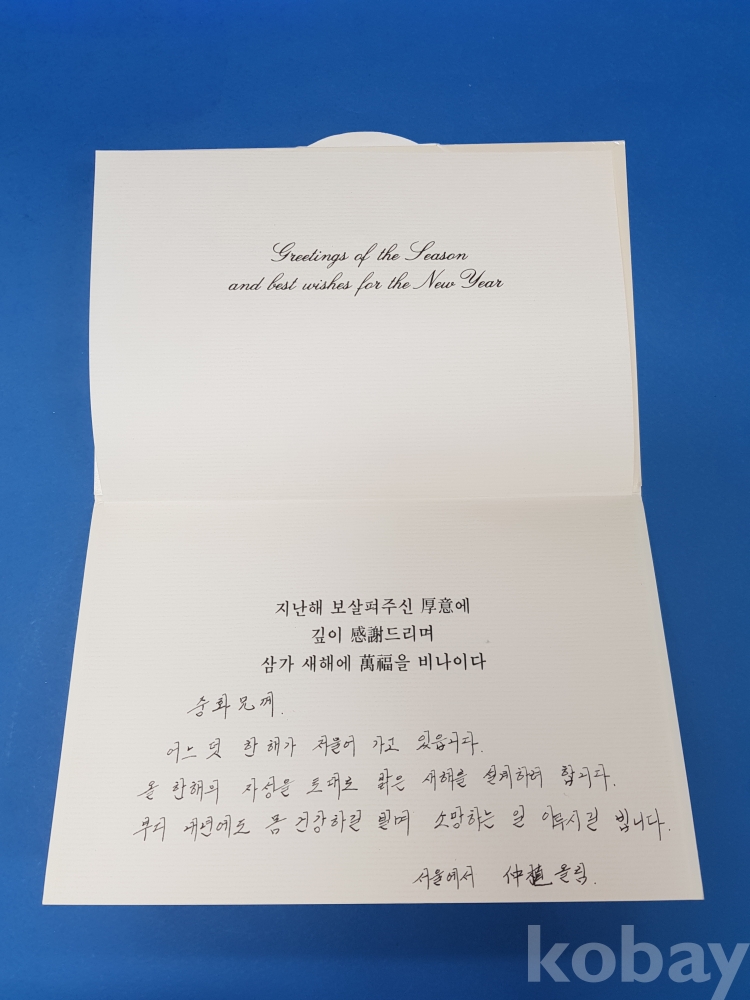 Greetings of the Season
and best wishes for the New Year
지난해 보살펴주신 厚意에
깊이 感謝드리며
삼가 새해에 萬福을 비나이다
중화兄께.
어느덧 한해가 저물어 가고 있읍니다.
올 한해의 자성을 토대로 밝은 새해를 설계하려 합니다.
부디 내년에도 몸 건강하길 빌며 소망하는 일 이루시길 빕니다.
서울에서 仲植 올림.
kobay